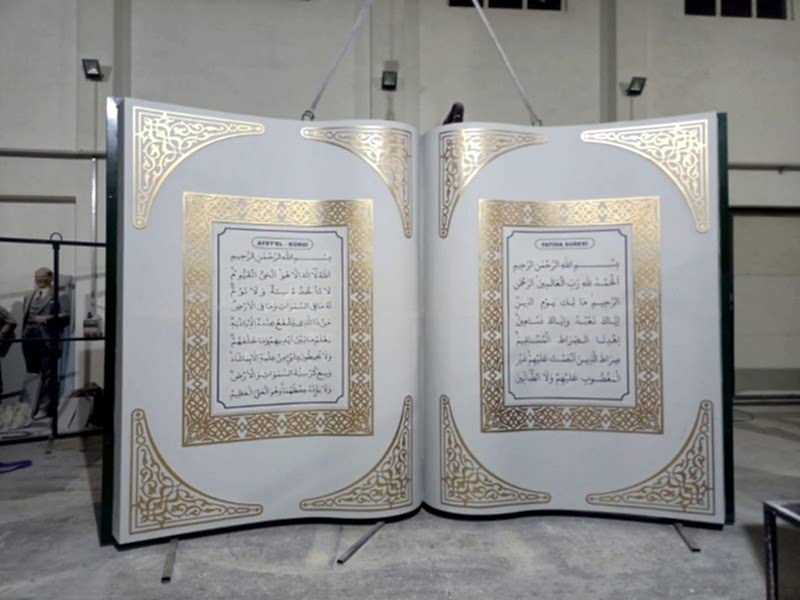 AYET'EL - KÜRSİ
بِسْــمِ اللهِ الرَّحْمٰنِ الرَّحِيمِ
اَللهُ لَٓا اِلٰهَ اِلَّا هُوَ اَلْحَيُّ الْقَيُّومُ
لَا تَأْخُذُهُ سِنَةٌ وَلَا نَوْمٌ
لَهُ مَا فِى السَّمٰوَاتِ وَمَا فِى الْاَرْضِ
مَنْ ذَا الَّذٖى يَشْفَعُ عِنْدَهُٓ اِلَّا بِاِذْنِهٖ
يَعْلَمُ مَا بَيْنَ اَيْدٖيهِمْ وَمَا خَلْفَهُمْ
وَلَا يُحٖيطُونَ بِشَیْءٍ مِنْ عِلْمِهٖٓ اِلَّا بِمَا شَٓاءَ
وَسِعَ كُرْسِيُّهُ السَّمٰوَاتِ وَالْاَرْضَ
وَلَا يَؤُدُهُ حِفْظُهُمَا وَهُوَ الْعَلِىُّ الْعَظٖيمُ
FATİHA SURESİ
بِسْــمِ اللهِ الرَّحْمٰنِ الرَّحِيمِ
اَلْحَمْدُ لِلهِ رَبِّ الْعَالَمٖينَ اَلرَّحْمٰنِ
الرَّحٖيمِ مَا لِكِ يَوْمِ الدّٖينِ
اِيَّاكَ نَعْبُدُ وَاِيَّاكَ نَسْتَعٖينُ
اِهْدِنَا الصِّرَاطَ الْمُسْتَقٖيمَ
صِرَاطَ الَّذٖينَ اَنْعَمْتَ عَلَيْهِمْ غَيْرِ
الْمَغْضُوبِ عَلَيْهِمْ وَلَا الضَّٓالّٖينَ